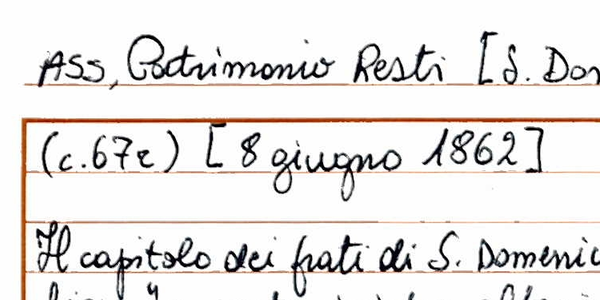 ASS, Patrimonio Resti [S. Dom
(c.67r) [8 giugno 1862]
Il capitolo dei frati di S. Domenic